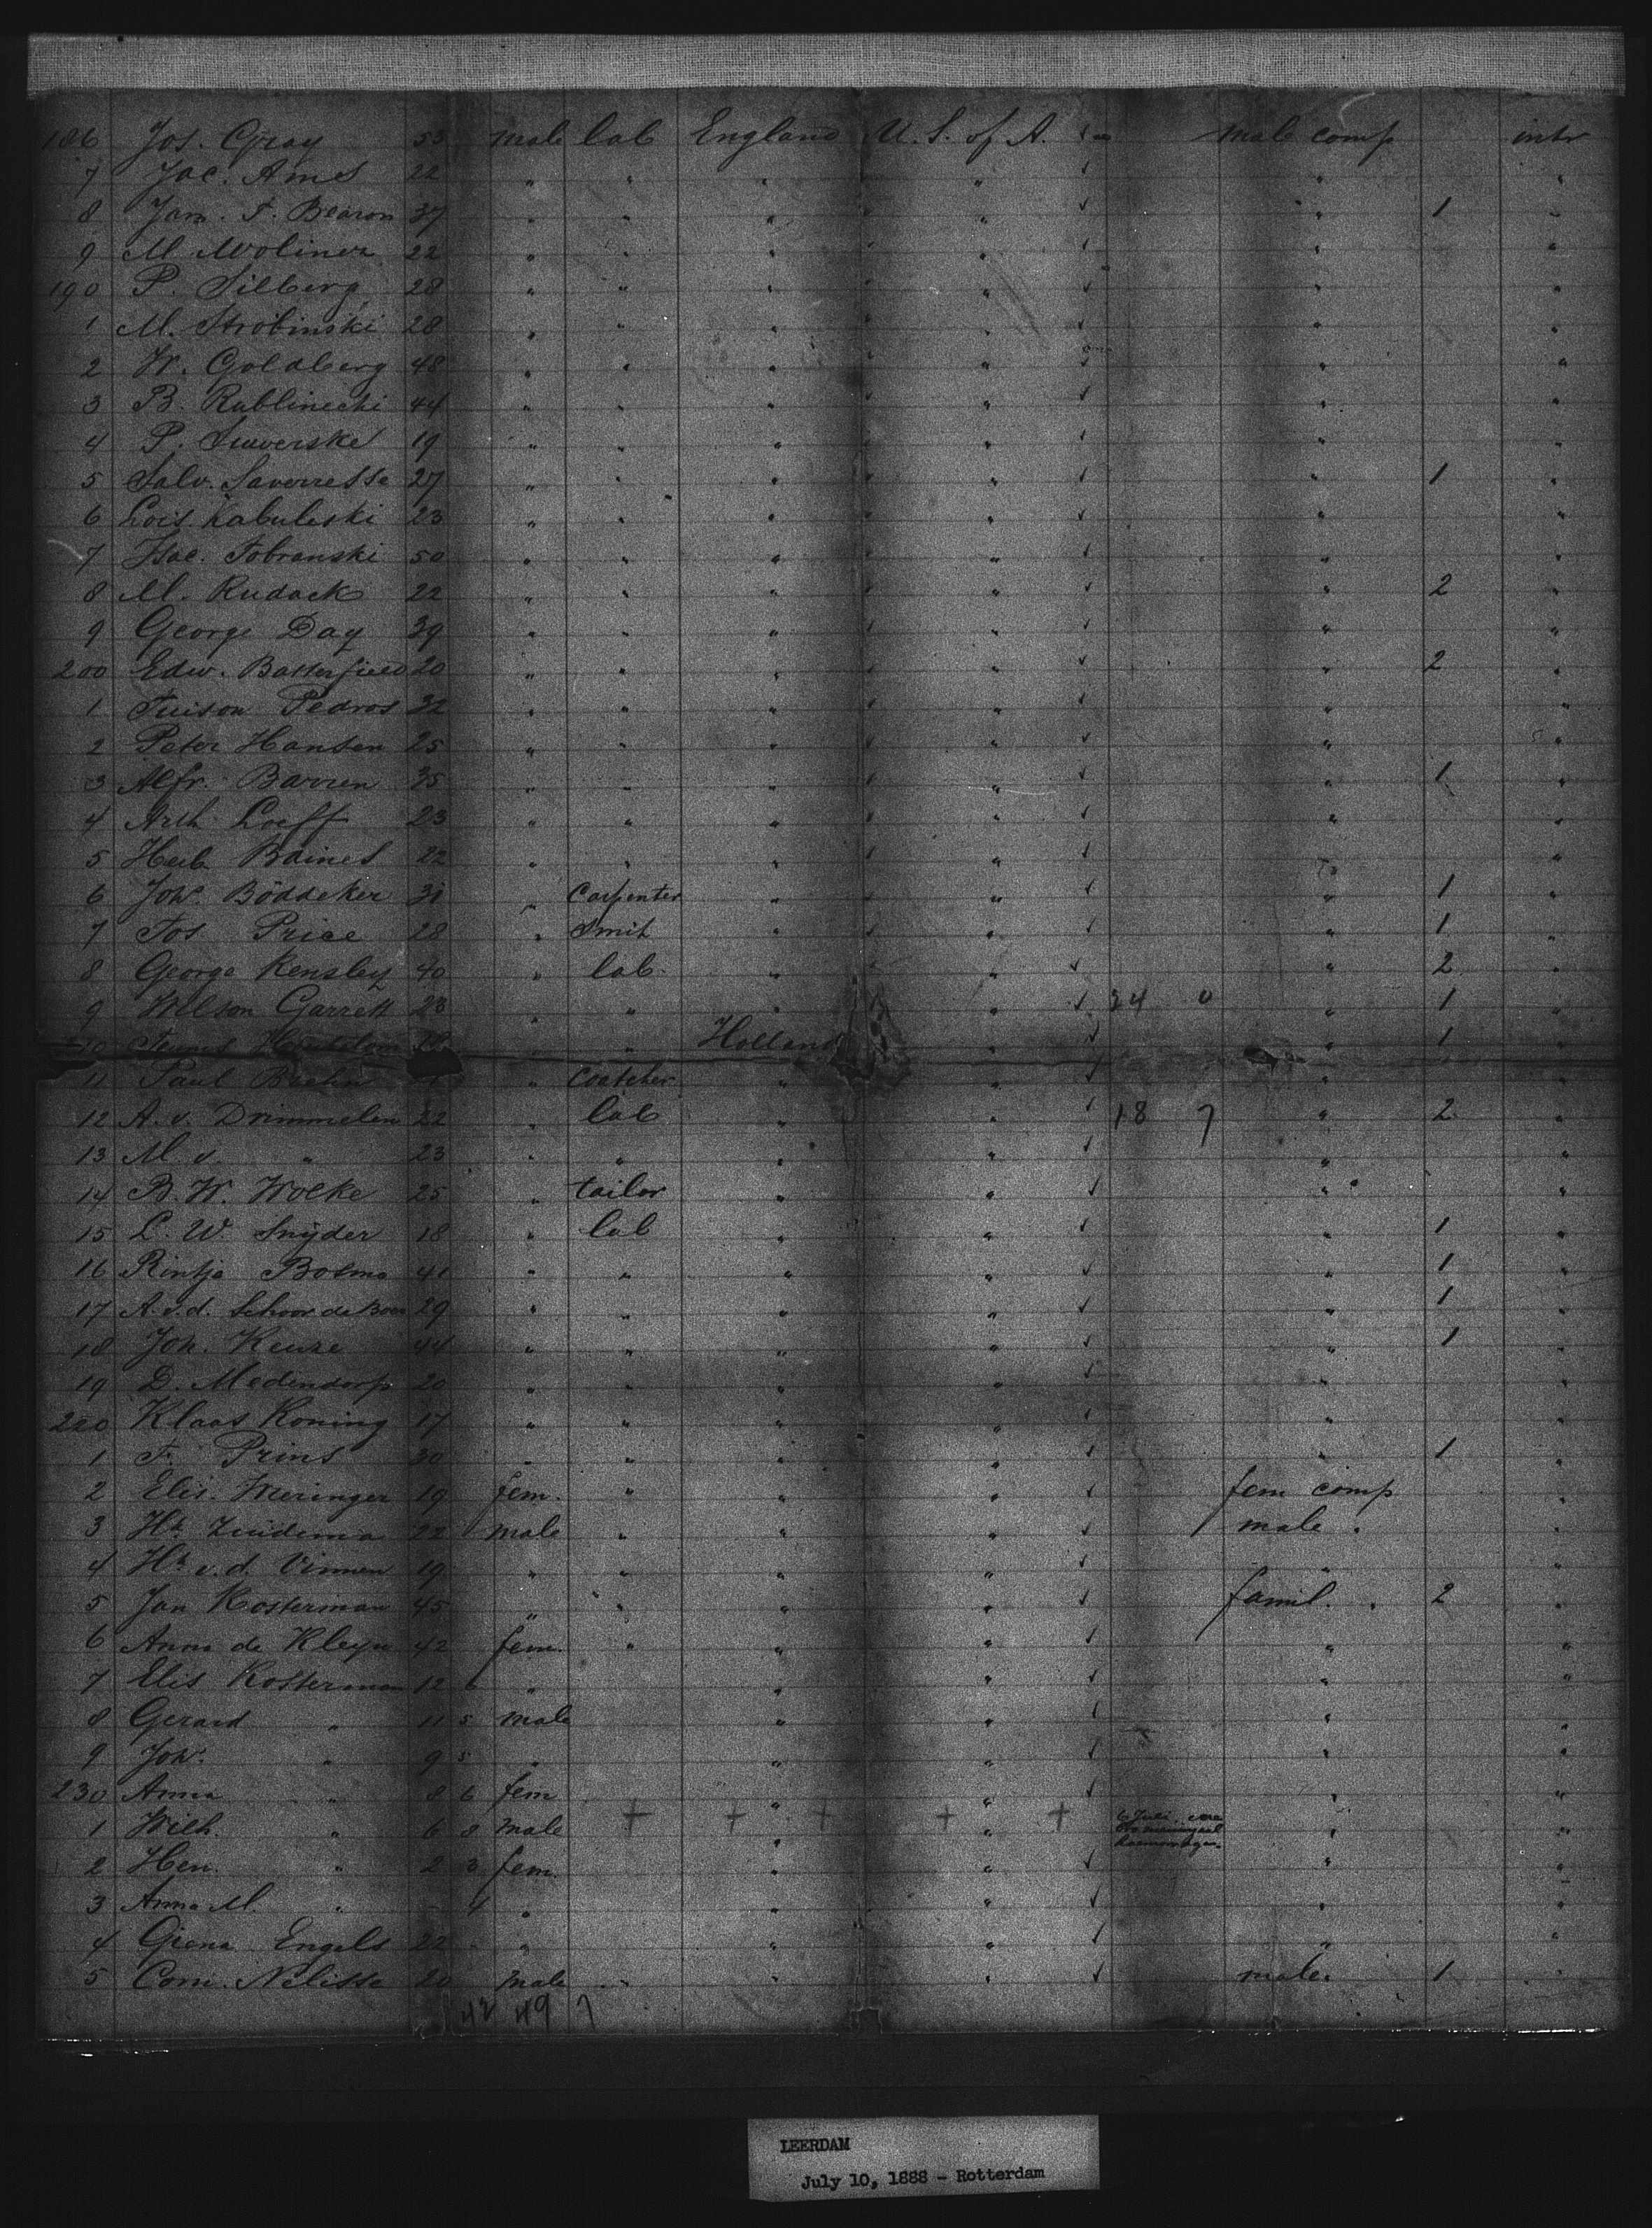 186 Jos. Gray 53 male lab England U. S. of A. male comp intr
7 Jac. Ames 22 " " " " " "
8 Jam. F. Bearon 37 " " " " " 1 "
9 M Moliner 22 " " " " " "
190 P. Silberg 28 " " " " " "
1 M. Strobinski 28 " " " " " "
2 W. Goldberg 48 " " " " " "
3 B. Rublinecki 44 " " " " " "
4 P. Suwerske 19 " " " " " "
5 Salv. Saverresse 27 " " " " " 1 "
6 Lois Kabuleski 23 " " " " " "
7 Isac. Tobranski 50 " " " " " "
8 M. Rudack 22 " " " " " 2 "
9 George Day 39 " " " " " "
200 Edw. Batterfield 20 " " " " " 2 "
1 Tuison Pedros 32 " " " " " "
2 Peter Hansen 25 " " " " " "
3 Alfr. Barren 35 " " " " " 1 "
4 Arth Loeff 23 " " " " " "
5 Herb Baines 22 " " " " " "
6 Joh. Böddeker 31 " Carpenter " " " 1 "
7 Jos Price 28 " Smit " " " 1 "
8 George Kensley 40 " lab. " " " 2 "
9 Wilson Garrett 23 " " " " 24 0 " 1 "
10 Teunis " " Holland " " 1 "
11 Paul " Coatcher " " " "
12 A. v. Drimmelen 22 " lab " " 18 7 " 2 "
13 M v. " 23 " " " " " "
14 B. W. Wolke 25 " tailor " " " "
15 L. W. Snÿder 18 " lab " " " 1 "
16 Rintje Bosma 41 " " " " " 1 "
17 A. v. d. Schoor de Boer 29 " " " " " 1 "
18 Joh. Keuze 44 " " " " " 1 "
19 D. Medendorp 20 " " " " " "
220 Klaas Koning 17 " " " " " "
1 F. Prins 30 " " " " " 1 "
2 Elis. Meringer 19 fem. " " " fem comp "
3 Hk Zuidema 22 male " " " male " "
4 Hk v. d. Vinnen 19 " " " " " "
5 Jan Kosterman 45 " " " " famil. " 2 "
6 Anna de Kleyn 42 fem. " " " " "
7 Elis Kosterman 12 6 " " " " "
8 Gerard " 11 5 male " " " "
9 Joh. " 9 5 " " " " "
230 Anna " 8 6 fem " " " "
1 Wilh. " 6 8 male + + + + + " " 6 Juli " "
2 Hen. " 2 3 fem. " " " "
3 Anna M. " 4 " " " " "
4 Giena Engels 22 " " " " "
5 Corn. Nelisse 20 male " " " male. 1 "
42 49 7
LEERDAM
July 10, 1888 - Rotterdam